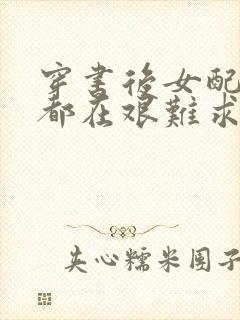 穿书後女配
都在艰難求
夹心糯米团子